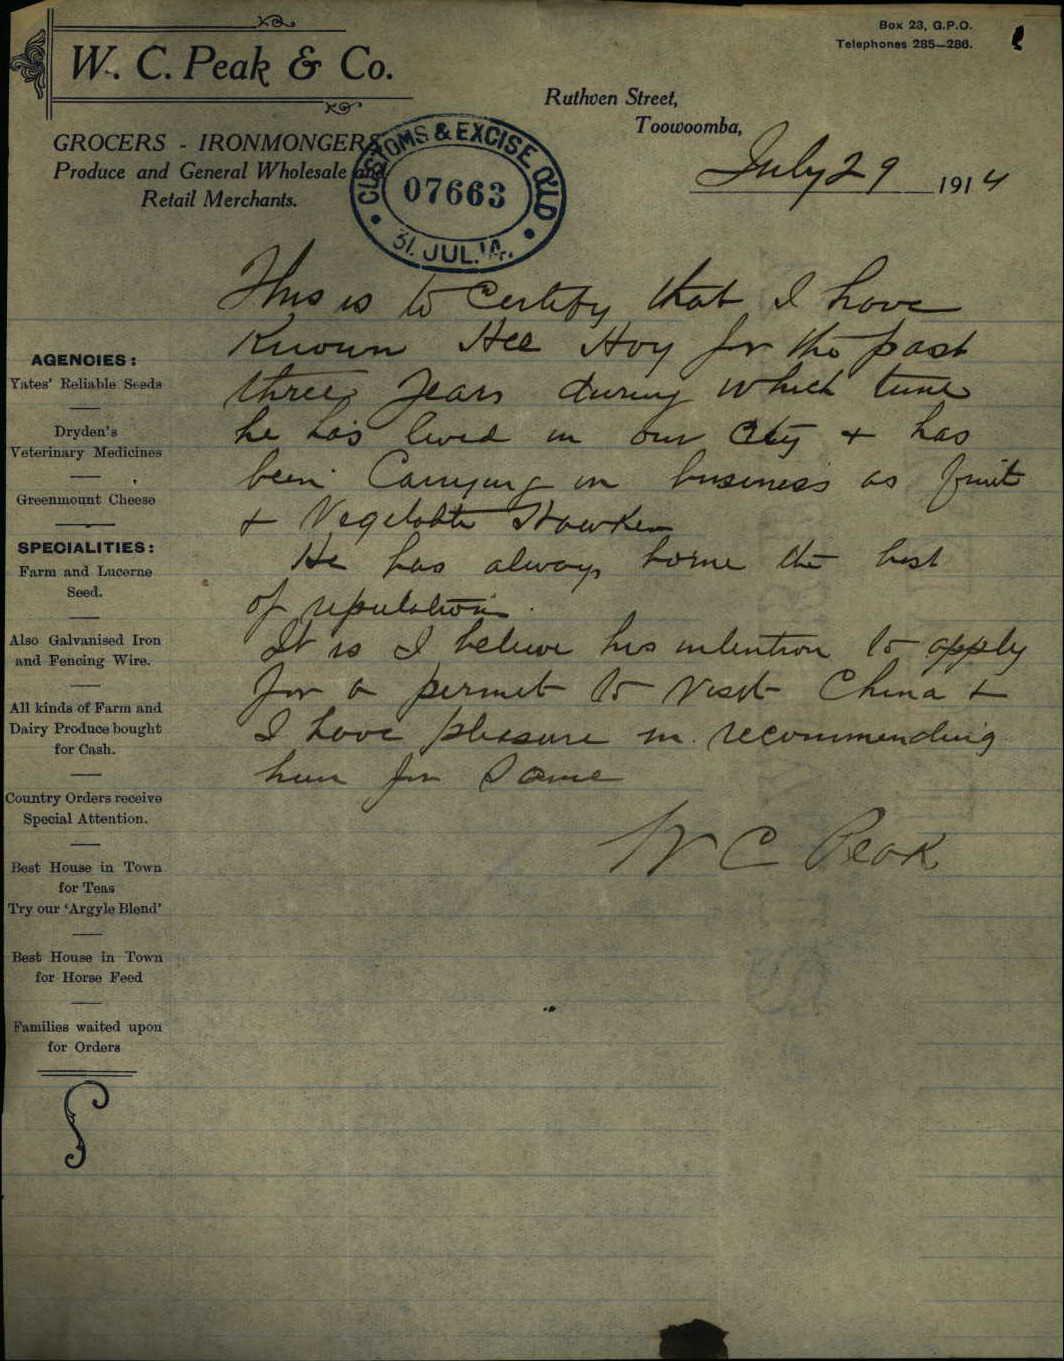 Box 23, G.P.O.
Telephones 285—286.
W. C. Peak & Co.
GROCERS - IRONMONGERS
Produce and General Wholesale and
Retail Merchants.
Ruthven Street,
Toowoomba,
July 29 1914
CUSTOMS & EXCISE QLD
07663
31. JUL. 14.
This is to Certify that I have
Known Hee Hoy for the past
three years during which time
he has lived in our City & has
been Carrying on business as fruit
& Vegetable Hawker
He has always borne the best
of reputation.
It is I believe his intention to apply
for a permit to visit China &
I have pleasure in recommending
him for Same
W C Peak
AGENCIES:
Yates' Reliable Seeds
Dryden's
Veterinary Medicines
Greenmount Cheese
SPECIALITIES:
Farm and Lucerne
Seed.
Also Galvanised Iron
and Fencing Wire.
All kinds of Farm and
Dairy Produce bought
for Cash.
Country Orders receive
Special Attention.
Best House in Town
for Teas
Try our 'Argyle Blend'
Best House in Town
for Horse Feed
Families waited upon
for Orders